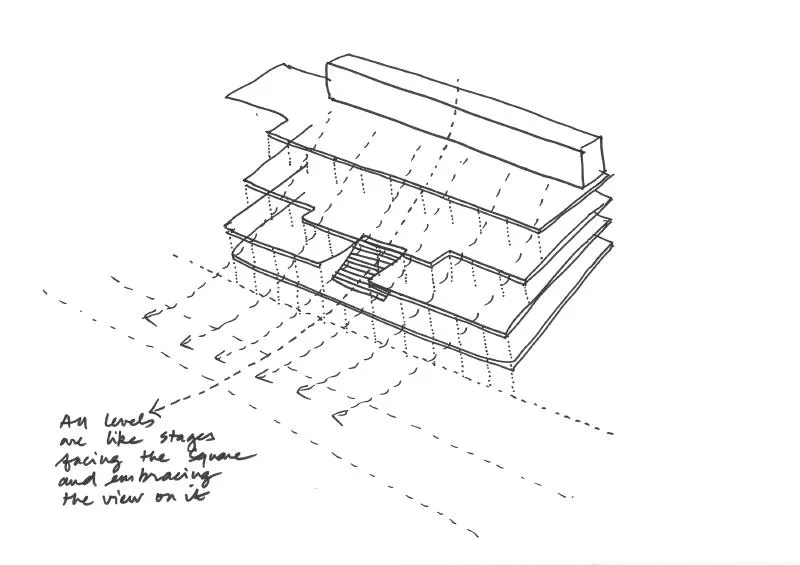 All levels
are like stages
facing the square
and embracing
the view on it